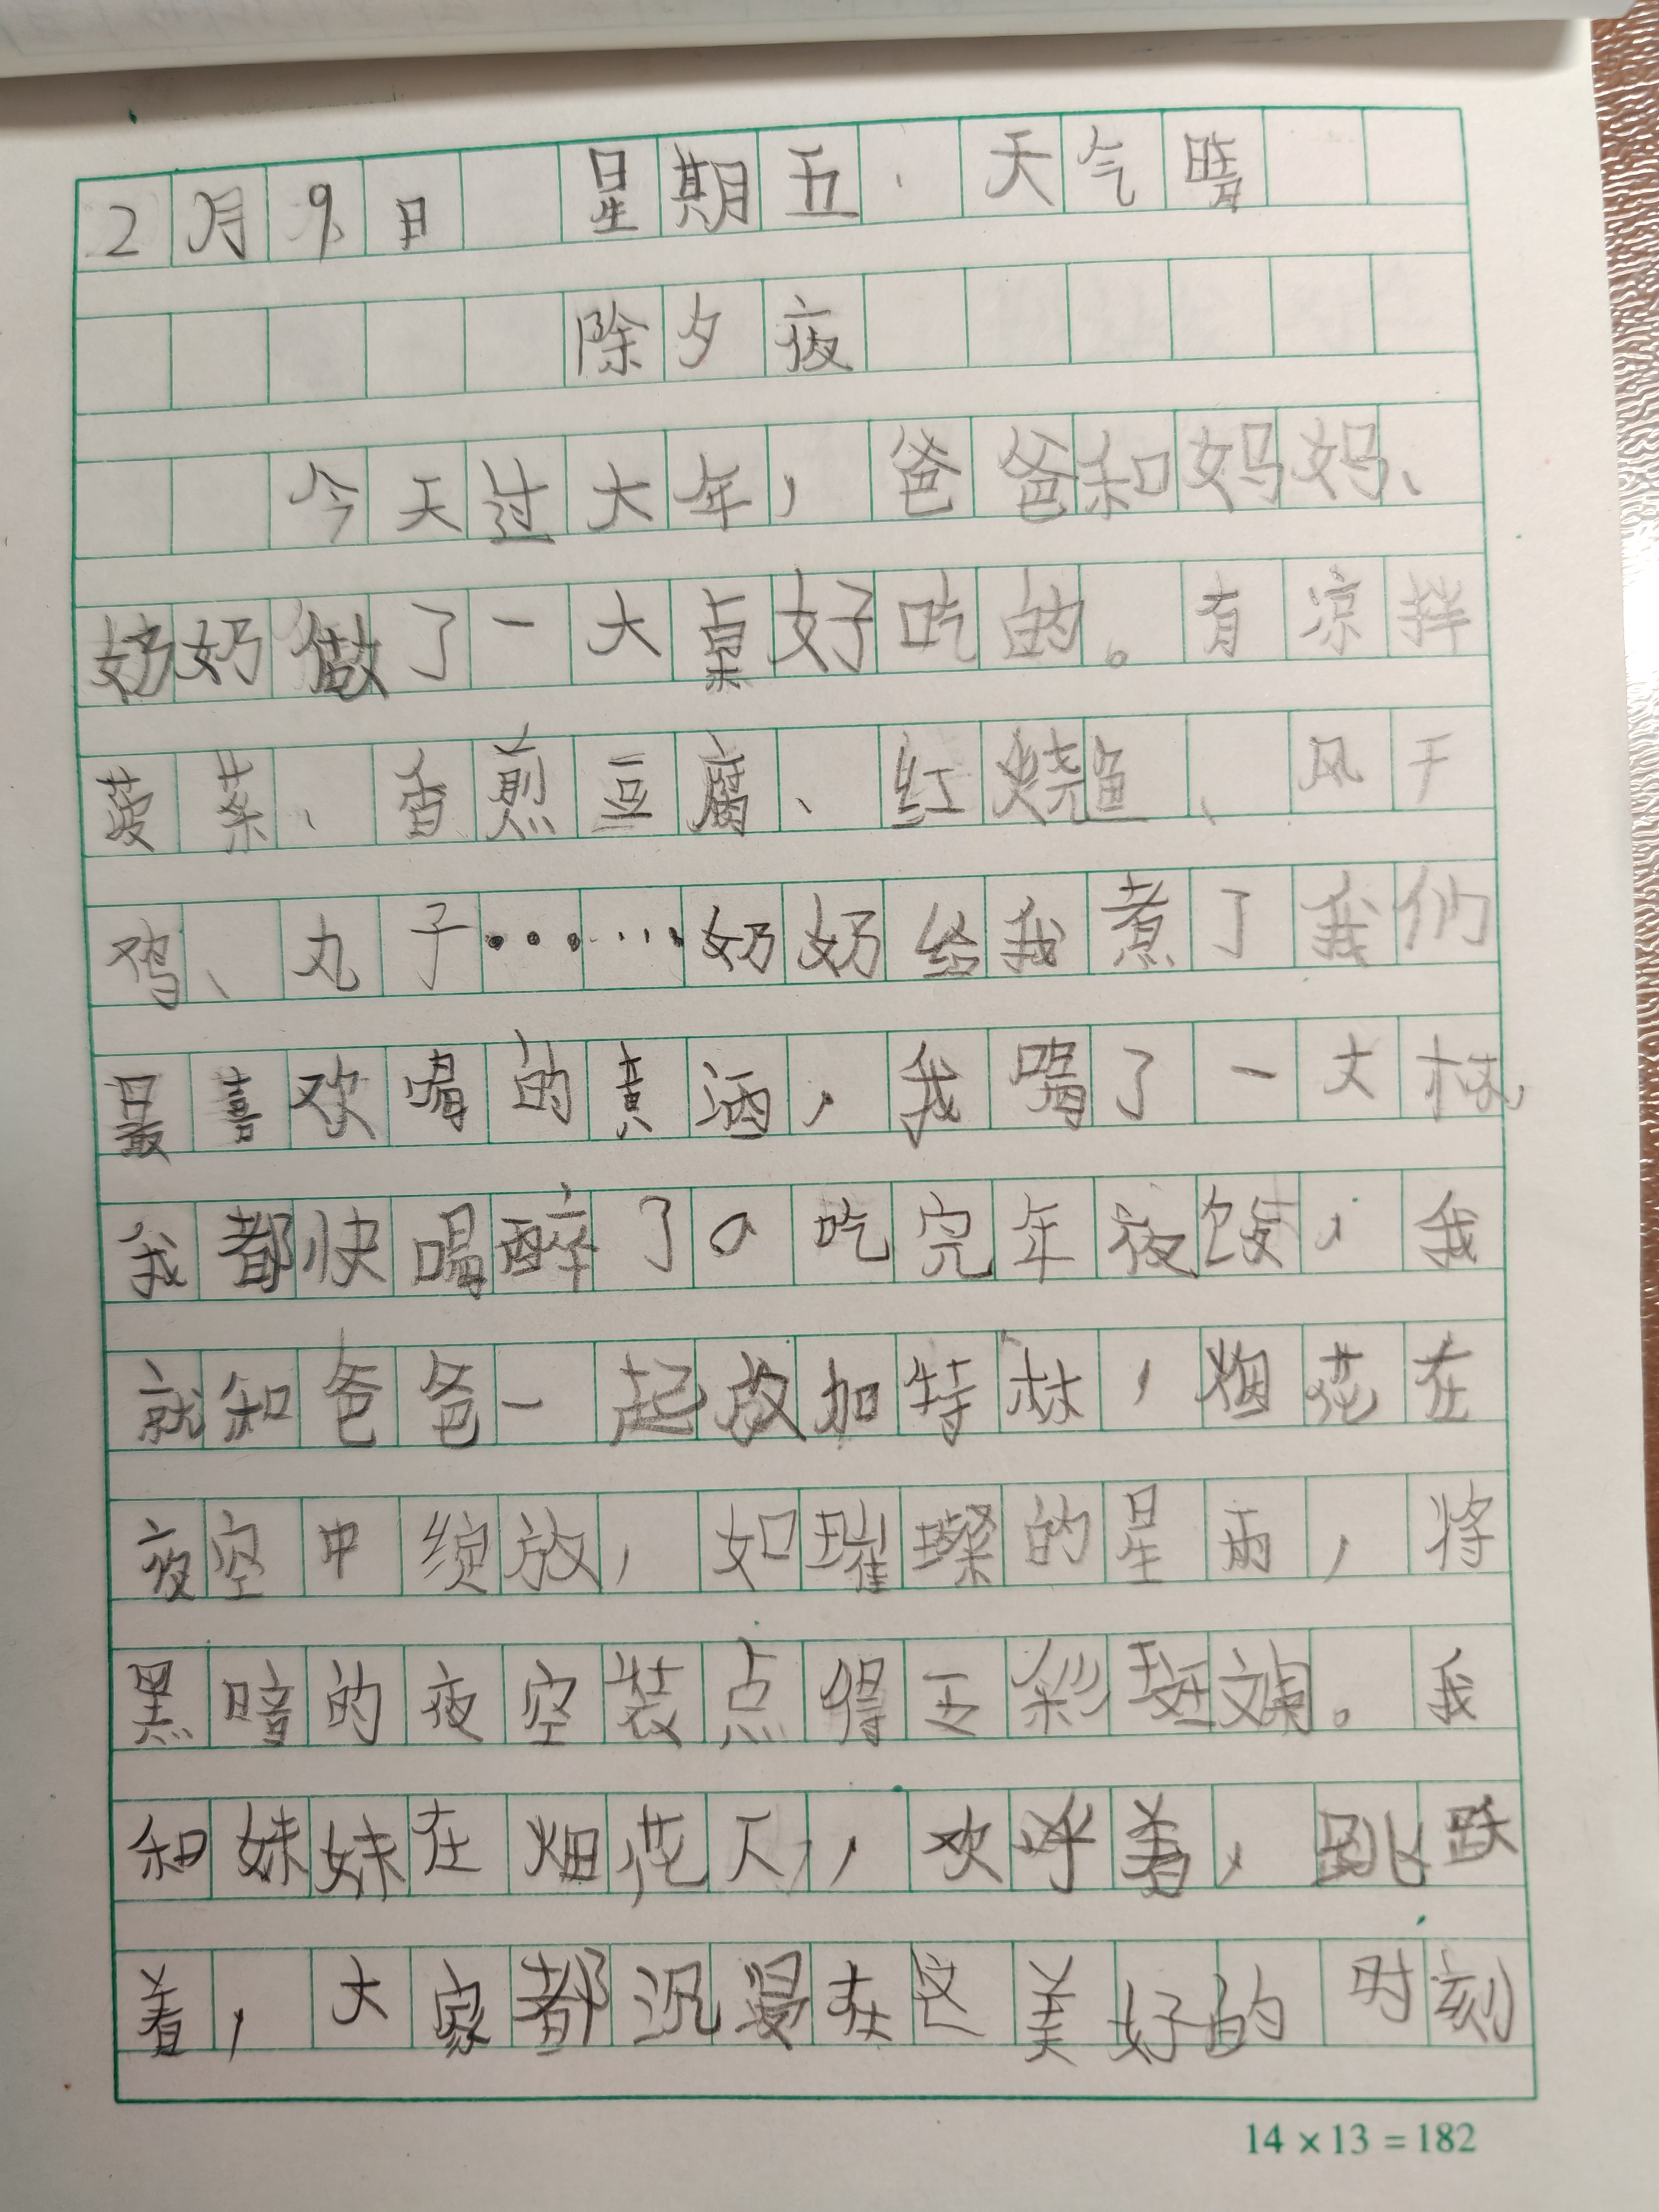 2月9日 星期五、天气晴
除夕夜
今天过大年，爸爸和妈妈、
奶奶做了一大桌好吃的。有凉拌
菠菜、香煎豆腐、红烧鱼、风干
鸡、丸子……奶奶给我煮了我们
最喜欢喝的黄酒，我喝了一大杯，
我都快喝醉了。吃完年夜饭，我
就和爸爸一起放加特林，烟花在
夜空中绽放，如璀璨的星雨，将
黑暗的夜空装点得五彩斑斓。我
和妹妹在烟花下，欢呼着，跳跃
着，大家都沉浸在这美好的时刻
14×13=182